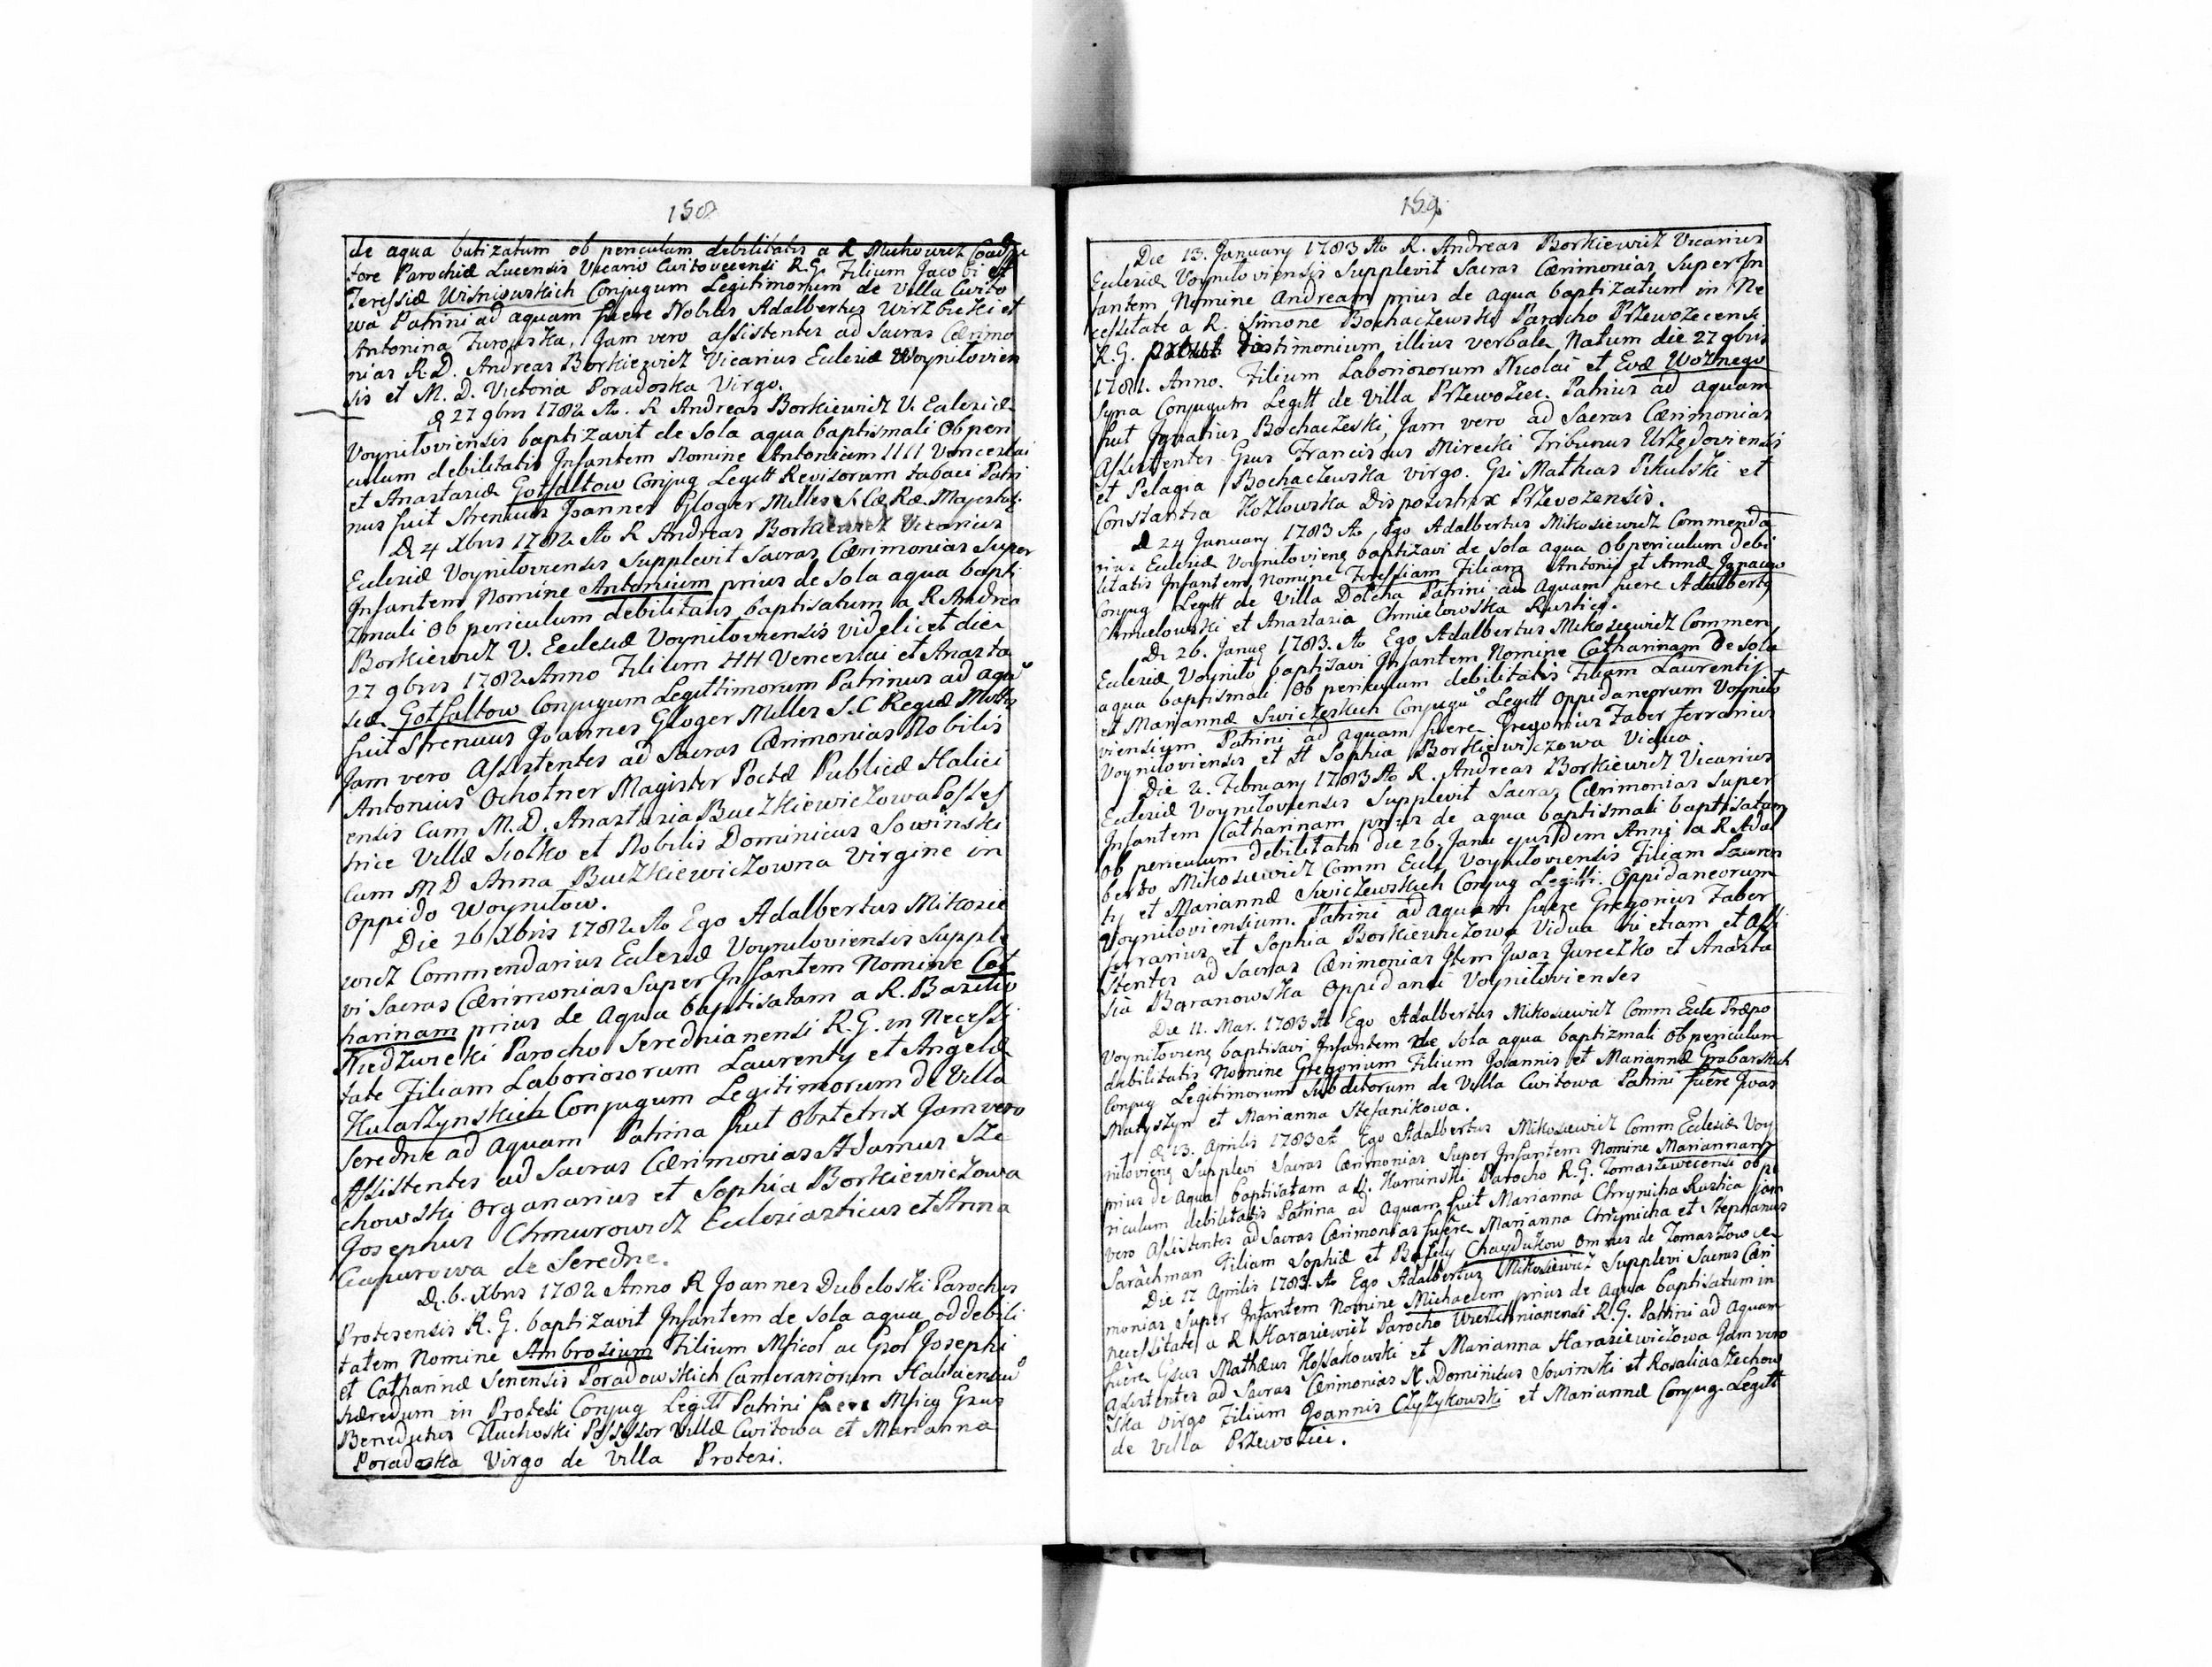 158
de aqua batizatum ob periculum debilitatis a R Michowicz Coadju
tore Parochiæ Lucensis Vicario Cwitovecensi R.G. Filium Jacobi et
Teressiæ Wisniowskich Conjugum Legitimorum de Villa Cwito
wa Patrini ad aquam fuere Nobilis Adalbertus Wirzbicki et
Antonina Turowska, Jam vero assistentes ad Sacras Cærimo
nias R.D. Andreas Borkiewicz Vicarius Eclesiæ Woynilovien
sis et M. D. Victoria Poradoska Virgo.
D 27 9bris 1782 Ao. R Andreas Borkiewicz V. Eclesiæ
Voyniloviensis baptizavit de Sola aqua baptismali Ob peri
culum debilitatis Infantem Nomine Antonium Venceslai
et Anastasiæ Gotfaltow Conjug Legitt Revisorum tabaci Patri
nus fuit Strenuus Joannes Gloger Milles S. Cæ Ræ. Majestatis
D 4 Xbris 1782 Ao R Andreas Borkiewicz Vicarius
Eclesiæ Voyniloviensis Supplevit Sacras Cærimonias Super
Infantem Nomine Antonium prius de Sola aqua bapti
zmali Ob periculum debilitatis baptisatum a R Andrea
Borkiewicz V. Eclesiæ Voyniloviensis videlicet die
27 9bris 1782 Anno Filium Venceslai et Anasta
siæ Gotfaltow Conjugum Legittimorum Patrinus ad aquã
fuit Strenuus Joannes Gloger Milles S. C Regiæ Mattis
Jam vero Assistentes ad Sacras Cærimonias Nobilis
Antonius Ochotner Magister Poctæ Publicæ Halici
ensis Cum M. D. Anastasia Buczkiewiczowa Posses
trice Villæ Siolko et Nobilis Dominicus Sowinski
Cum M D Anna Buczkiewiczowna Virgine in
Oppido Woynilow.
Die 26 Xbris 1782 Ao Ego Adalbertus Mikosie
wicz Commendarius Eclesiæ Voyniloviensis Supple
vi Sacras Cærimonias Super Infantem Nomine Cat
harinam prius de Aqua baptisatam a R. Basilio
Niedzwicki Parocho Serednianensi R.G. in Necessi
tate Filiam Laboriosorum Laurenty et Angelæ
Kulaszynskich Conjugum Legitimorum de Villa
Seredne ad Aquam Patrina fuit Obstetrix Jam vero
Assistentes ad Sacras Cærimonias Adamus Sze
chowski Organarius et Sophia Borkiewiczowa
Josephus Chmurowicz Eclesiasticus et Anna
Capurowa de Seredne.
D. 6. Xbris 1782 Anno R Joannes Dubeloski Parochus
Protesensis R. G. baptizavit Infantem de Sola aqua ob debili
tatem Nomine Ambrosium Filium Mficor ac Gror Josephi
et Catharinæ Senensis Poradowskich Camerariorum Haliciensiũ
hæredum in Protesi Conjug Legitt Patrini fuere Mficg Grus
Benedictus Tluchoski Possessor Villæ Cwitowa et Marianna
Poradoska Virgo de Villa Protesi.
159.
Die 13. January 1783 Ao R. Andreas Borkiewicz Vicarius
Eclesiæ Voyniloviensis Supplevit Sacras Cærimonias Super In
fantem Nomine Andream prius de aqua baptizatum in Ne
cessitate a R. Simone Bochaczewski Parocho Przewozecensi
R.G. testimonium illius verbale Natum die 27 9bris
1781. Anno. Filium Laboriosorum Nicolai et Evæ Woznego
Syna Conjugum Legitt de Villa Przewoziec. Patrius ad Aquam
fuit Ignatius Bochaczeski, Jam vero ad Sacras Cærimonias
Assistentes Grus Franciscus Mirecki Tribunus Urzędoviensis
et Pelagia Bochaczewska virgo. Gsi Mathias Pikulski et
Constantia Kozlowska Dispositrix Przevozensis.
D 24 January 1783 Ao, Ego Adalbertus Mikosiewicz Commenda
rius Eclesiæ Voynilovieng baptizavi de Sola aqua Ob periculum debi
litatis Infantem Nomine Teressiam Filiam Antonij et Annæ Ignacow
Conjug Legitt de Villa Dolcha Patrini ad Aquam fuere Adalbertg
Chmielowski et Anastasia Chmielowska Rustici.
D. 26. Janug 1783. Ao Ego Adalbertus Mikosiewicz Commen
Eclesiæ Voynilo baptisavi Infantem Nomine Catharinam de Sola
aqua baptismali Ob periculum debilitatis Filiam Laurentij
et Mariannæ Swiczeskich Conjugũ Legitt Oppidaneorum Voynilo
viensium Patrini ad Aquam fuere Gregorius Faber ferrarius
Voyniloviensis et Sophia Borkiewiczowa Vidua
Die 2. February 1783 Ao R. Andreas Borkiewicz Vicarius
Eclesiæ Voyniloviensis Supplevit Sacras Cærimonias Super
Infantem Catharinam prius de aqua baptismali baptisatam
Ob periculum debilitatis die 26. Janu ejusdem Anni a R Adal
berto Mikosiewicz Comm Ecle Voyniloviensis Filiam Lauren
ty et Mariannæ Swiczewskich Conjug Legitti. Oppidaneorum
Voyniloviensium. Patrini ad aquam fuere Gregorius Faber
ferrarius et Sophia Borkiewiczowa Vidua hi etiam et Assi
stentes ad Sacras Cærimonias Item Iwas Jureczko et Anasta
sia Baranowska Oppidanei Voynilovienses
Die 11. Mar. 1783 Ao Ego Adalbertus Mikosiewicz Comm Ecle Præpo
Voynilovieng baptisavi Infantem de sola aqua baptizmali Ob periculum
debilitatis Nomine Gregorium Filium Joannis et Mariannæ Grabarskich
Conjug Legitimorum Subditorum de Villa Cwitowa Patrini fuere Iwas
Matyszyn et Marianna Stefanikowa.
D 13. Aprilis 1783 A Ego Adalbertus Mikosiewicz Comm Eclesiæ Voy
nilovieng Supplevi Sacras Cærimonias Super Infantem Nomine Mariannam
prius de Aqua baptisatam a Kaminski Parocho R.G. Tomaszewecensi ob pe
riculum debilitatis Patrina ad Aquam fuit Marianna Chrynicha Rustica jam
vero Assistentes ad Sacras Cærimonias fuere Marianna Chrynicha et Stephanus
Sarachman Filiam Sophiæ et Basily Chaydukow Omnes de Tomaszowce
Die 17 Aprilis 1783. Ao Ego Adalbertus Mikosiewicz Supplevi Sacras Cæri
monias Super Infantem Nomine Michaelem prius de Aqua baptisatum in
necessitate a R Harasiewicz Parocho Wierzchnianensi R.G. Patrini ad Aquam
fuere Gsus Mathæus Kossakowski et Marianna Harasiewiczowa Jam vero
Asistentes ad Sacras Cærimonias N. Dominicus Sowinski et Rosalia Szechow
ska Virgo Filium Joannis Czyzykowski et Mariannæ Conjug. Legitt
de Villa Przewoziec.